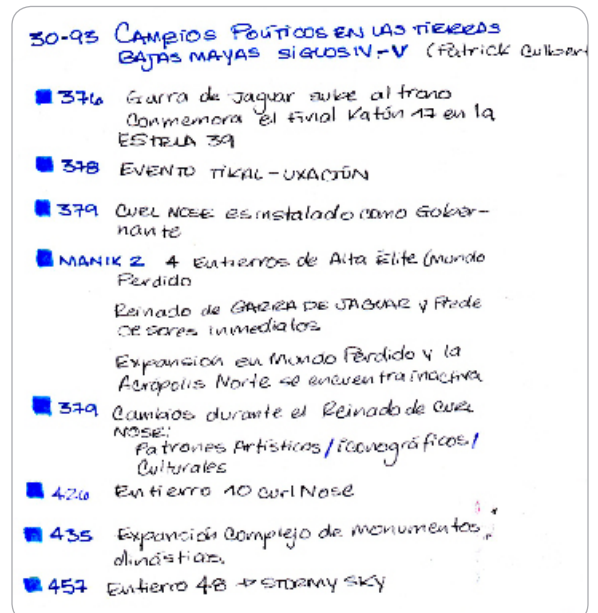 30-93 CAMBIOS POLÍTICOS EN LAS TIERRAS
BAJAS MAYAS SIGLOS IV-V (Patrick Culbert
376 Garra de Jaguar sube al trono
Conmemora el final Katún 17 en la
ESTELA 39
378 EVENTO TIKAL-UXACTÚN
379 CURL NOSE es instalado como Gober-
nante
MANIK 2 4 Entierros de Alta Elite (Mundo
Perdido
Reinado de GARRA DE JAGUAR y Prede
cesores inmediatos
Expansión en Mundo Perdido y la
Acrópolis Norte se encuentra inactiva
379 Cambios durante el Reinado de CURL
NOSE:
Patrones Artísticos/iconográficos/
Culturales
426 Entierro 10 Curl Nose
435 Expansión Complejo de monumentos
dinástias.
457 Entierro 48 → STORMY SKY